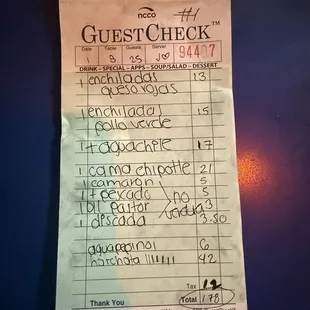 ncco #1
GUESTCHECK™
Date Table Guests Server 94407
1 8 25 JO
DRINK – SPECIAL – APPS – SOUP/SALAD – DESSERT
1 enchiladas 13
queso rojas
1 enchiladas 15
pollo verde
1 t aguachile 17
1 cama chipotle 21
1 camaron 5
1 t pescado no 5
1 pastor verdura 3
1 discada 3.50
agua pepino 1 6
horchata 1111111 42
Tax 12
Thank You Total 178